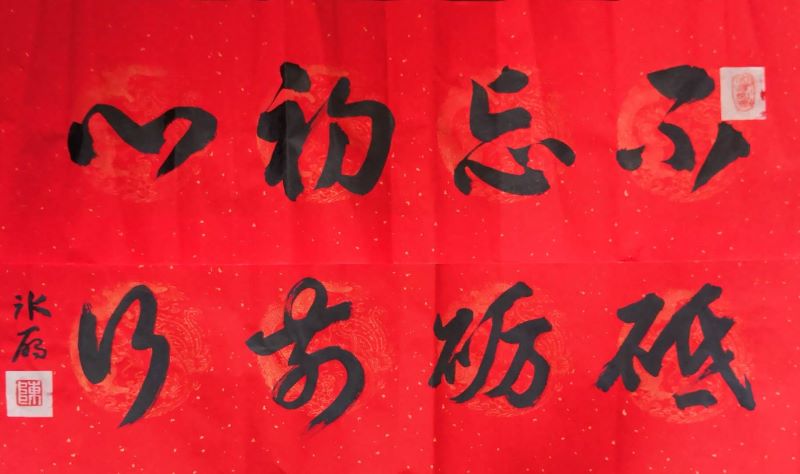 不忘初心
砥砺前行
陈